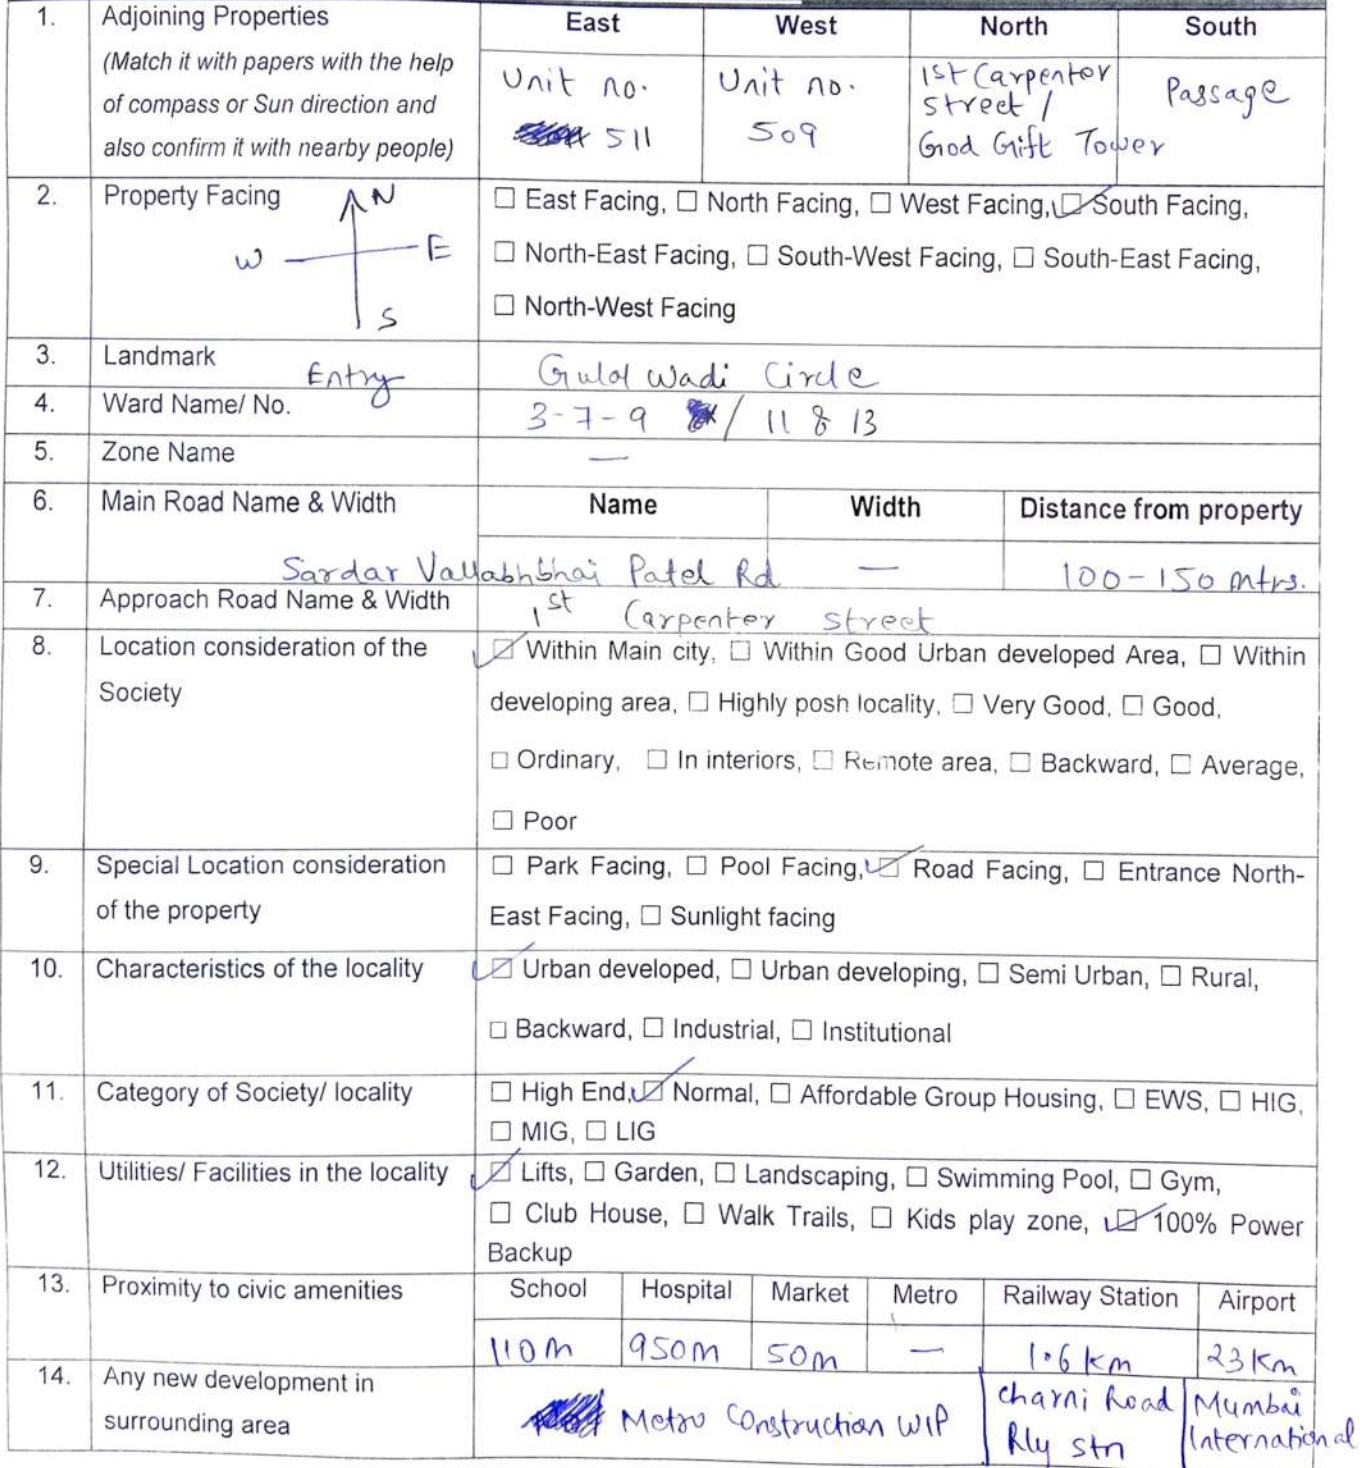 1. Adjoining Properties East West North South
(Match it with papers with the help
of compass or Sun direction and
also confirm it with nearby people)
Unit no. 511
Unit no. 509
1st Carpenter street / God Gift Tower
Passage
2. Property Facing
N
W E
S
☐ East Facing, ☐ North Facing, ☐ West Facing, ☑ South Facing,
☐ North-East Facing, ☐ South-West Facing, ☐ South-East Facing,
☐ North-West Facing
3. Landmark Entry Gulal Wadi Circle
4. Ward Name/ No. 3-7-9 / 11 & 13
5. Zone Name —
6. Main Road Name & Width Name Width Distance from property
Sardar Vallabhbhai Patel Rd — 100-150 mtrs.
7. Approach Road Name & Width 1st Carpenter street
8. Location consideration of the
Society
☑ Within Main city, ☐ Within Good Urban developed Area, ☐ Within
developing area, ☐ Highly posh locality, ☐ Very Good, ☐ Good,
☐ Ordinary, ☐ In interiors, ☐ Remote area, ☐ Backward, ☐ Average,
☐ Poor
9. Special Location consideration
of the property
☐ Park Facing, ☐ Pool Facing, ☑ Road Facing, ☐ Entrance North-
East Facing, ☐ Sunlight facing
10. Characteristics of the locality
☑ Urban developed, ☐ Urban developing, ☐ Semi Urban, ☐ Rural,
☐ Backward, ☐ Industrial, ☐ Institutional
11. Category of Society/ locality
☐ High End, ☑ Normal, ☐ Affordable Group Housing, ☐ EWS, ☐ HIG,
☐ MIG, ☐ LIG
12. Utilities/ Facilities in the locality
☑ Lifts, ☐ Garden, ☐ Landscaping, ☐ Swimming Pool, ☐ Gym,
☐ Club House, ☐ Walk Trails, ☐ Kids play zone, ☑ 100% Power
Backup
13. Proximity to civic amenities School Hospital Market Metro Railway Station Airport
110m 950m 50m — 1.6 km 23 Km
14. Any new development in
surrounding area
Metro Construction WIP
Charni Road
Rly stn
Mumbai
International